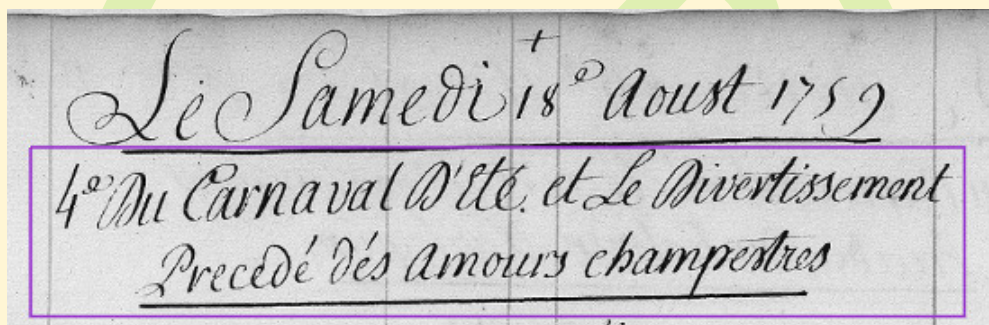 Le Samedi 18e Aoust 1759
4e Du Carnaval D'Eté. et Le Divertissement
Precedé dés Amours champestres